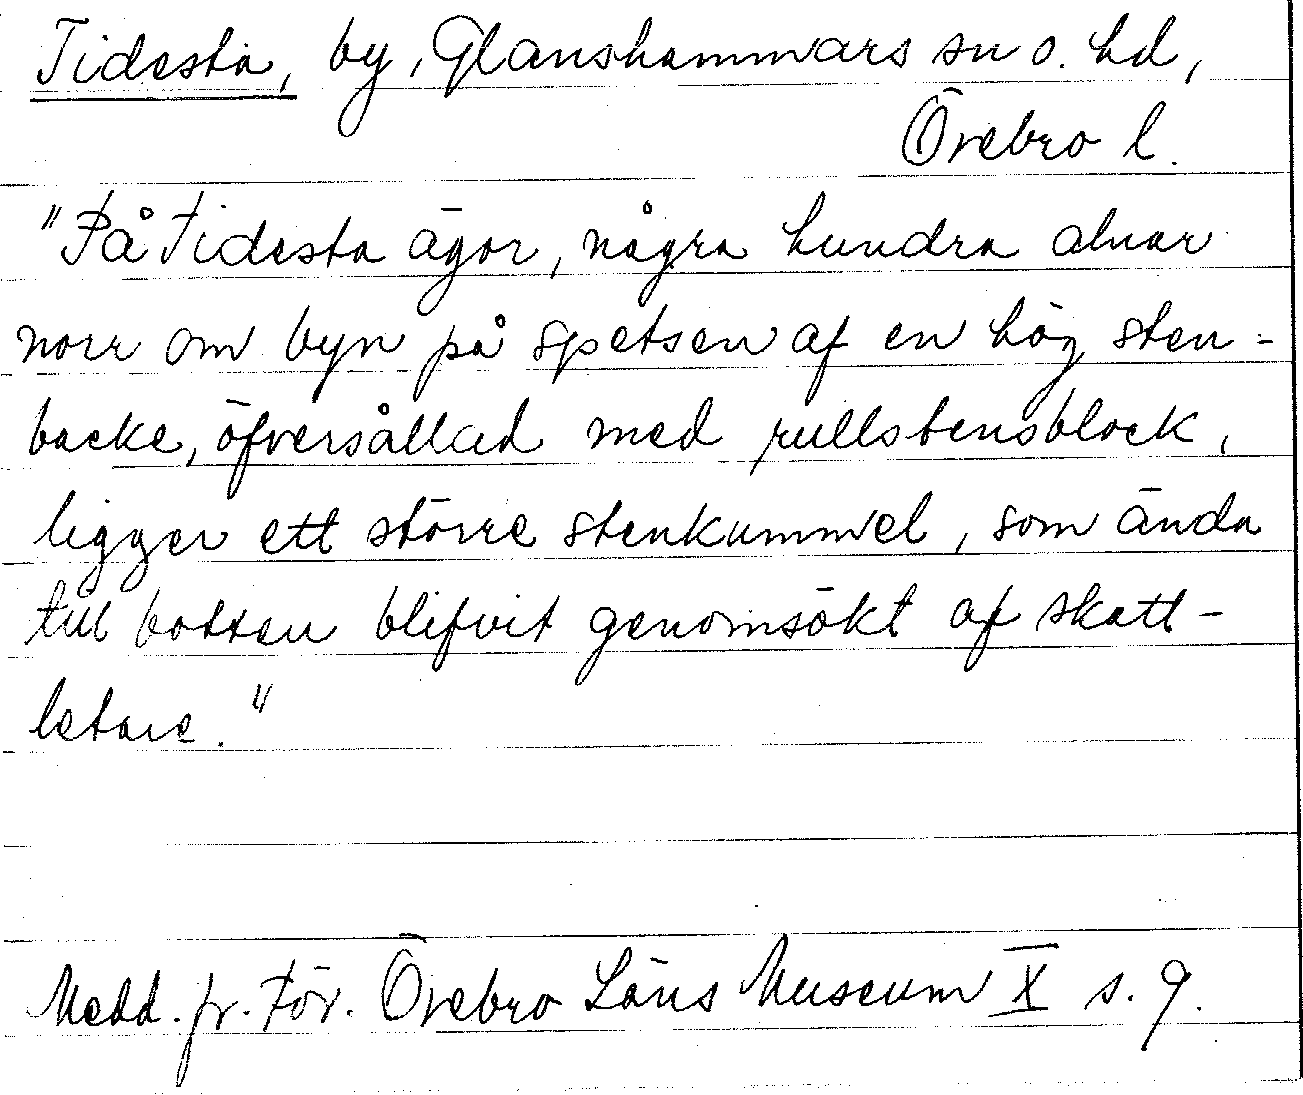 Tidesta, by, Glanshammars sn o. hd,
Örebro l.
"På Tidesta ägor, några hundra alnar
norr om byn på spetsen af en hög sten-
backe, öfversållad med rullstensblock,
ligger ett större stenkummel, som ända
till botten blifvit genomsökt af skatt-
letare."
Medd. fr. För. Örebro Läns Museum X s. 9.